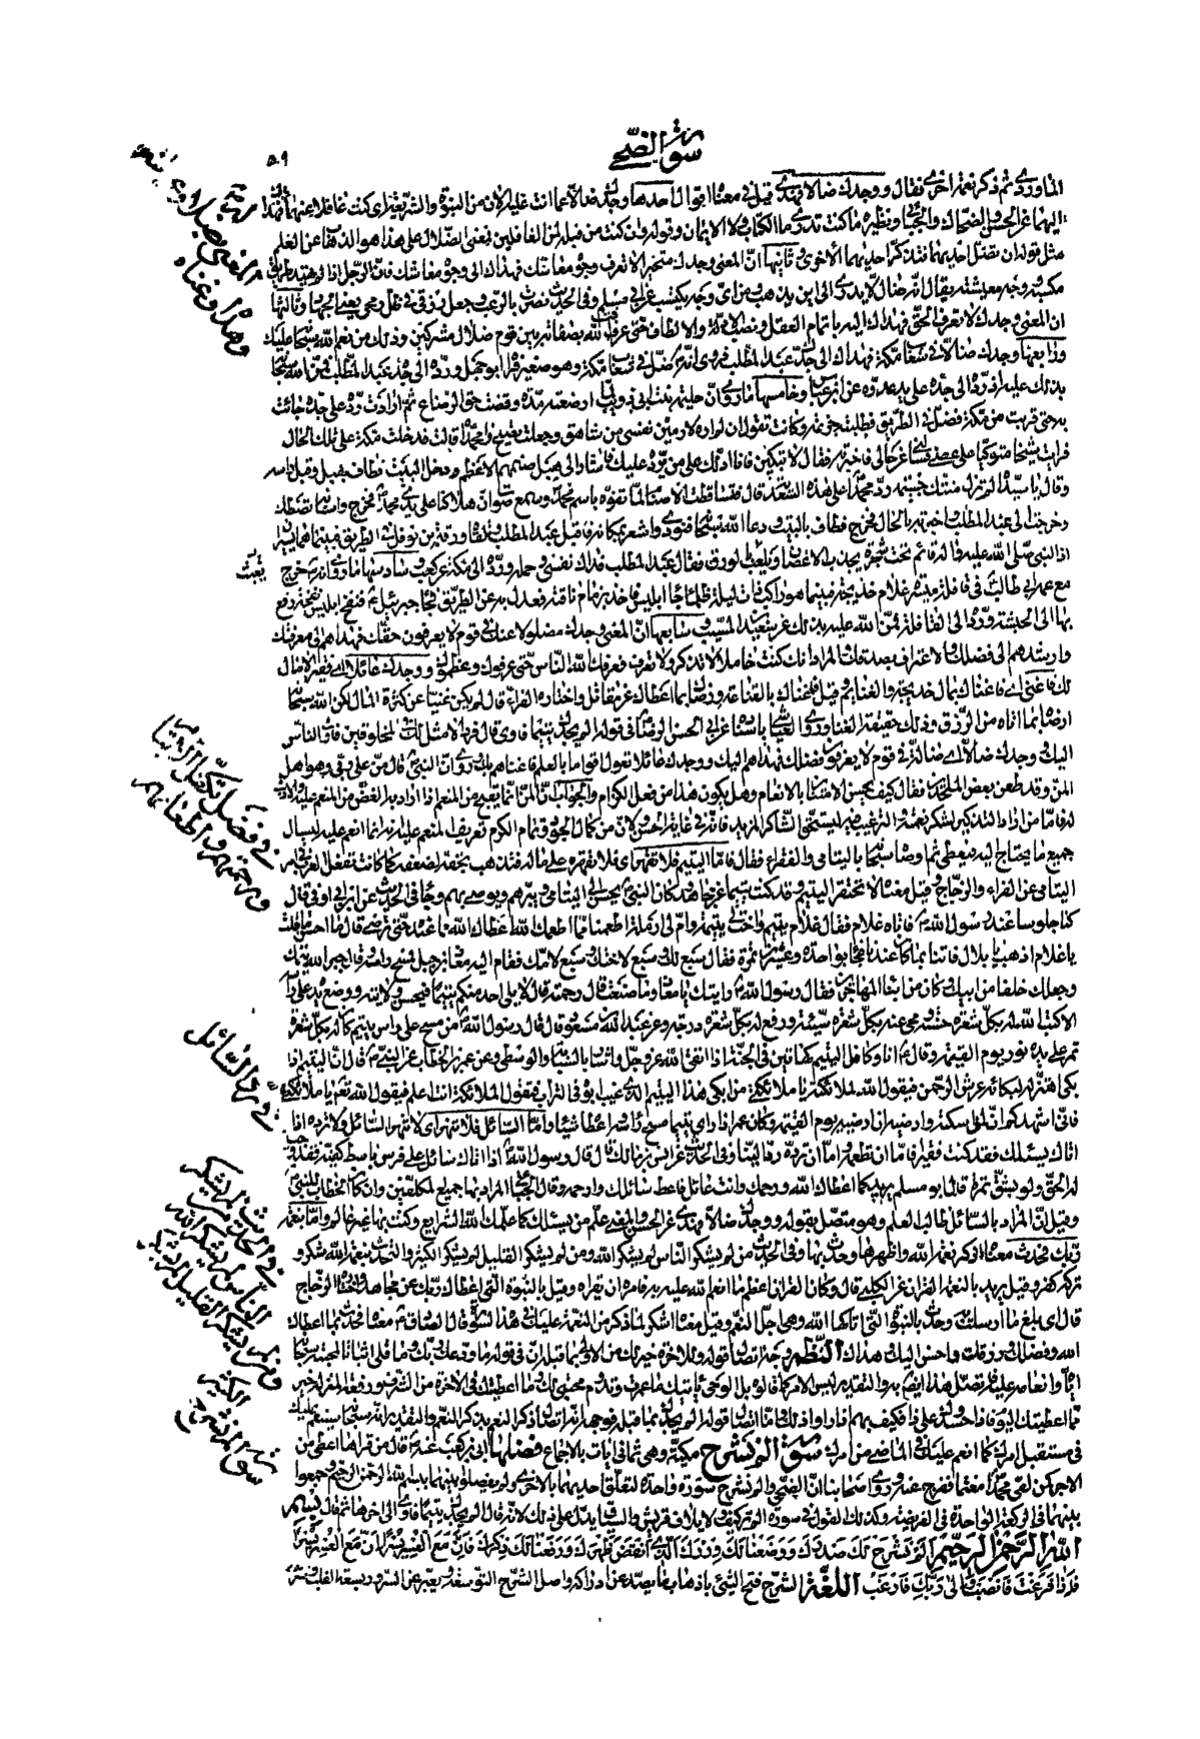 سورة الضحى
٥٠٩
الماوردي ثم ذكر نعمة اخرى فقال ووجدك ضالا فهدى قيل في معناه اقوال احدها وجدك ضالا عما انت عليه الان من النبوة والشريعة اي كنت غافلا عنهما فهداك
اليهما عن الحسن والضحاك والجبائي ونظيره ما كنت تدري ما الكتاب ولا الايمان وقوله وان كنت من قبله لمن الغافلين فمعنى الضلال على هذا هو الذهاب عن العلم
مثل قوله ان تضل احديهما فتذكر احديهما الاخرى وثانيها ان المعنى وجدك متحيرا لا تعرف وجوه معاشك فهداك الى وجوه معاشك فان الرجل اذا لم يهتد طريق
مكسبه ووجه معيشته يقال انه ضال لا يدري الى اين يذهب ومن اي وجه يكتسب عن ابي مسلم وفي الحديث نصرت بالرعب وجعل رزقي في ظل رمحي يعني الجهاد وثالثها
ان المعنى وجدك لا تعرف الحق فهداك اليه باتمام العقل ونصب الادلة والالطاف حتى عرفت الله بصفاته بين قوم ضلال مشركين وذلك من نعم الله سبحانه عليك
ورابعها وجدك ضالا في شعاب مكة فهداك الى جدك عبد المطلب فروي انه ضل في شعاب مكة وهو صغير فراه ابو جهل ورده الى جده عبد المطلب فمن الله سبحانه
بذلك عليه اذ رده الى جده على يد عدوه عن ابن عباس وخامسها ما روي ان حليمة بنت ابي ذويب لما ارضعته مدة وقضت حق الرضاع ثم ارادت رده على جده جاءت
به حتى قربت من مكة فضل في الطريق فطلبته جزعة وكانت تقول ان لم اره لارمين نفسي من شاهق وجعلت تصيح وا محمداه قالت فدخلت مكة على تلك الحال
فرايت شيخا متوكيا على عصا فسالني عن حالي فاخبرته فقال لا تبكين فانا ادلك على من يرده عليك فاشار الى هبل صنمهم الاعظم ودخل البيت فطاف بهبل وقبل راسه
وقال يا سيداه لم تزل منتك جسيمة رد محمدا على هذه السعدية قال فتساقطت الاصنام لما تفوه باسم محمد وسمع صوت ان هلاكنا على يدي محمد فخرج واسنانه تصطك
وخرجت الى عبد المطلب واخبرته بالحال فخرج فطاف بالبيت ودعا الله سبحانه فنودي واشعر بمكانه فاقبل عبد المطلب وتلقاه ورقة بن نوفل في الطريق فبينما هما يسيران
اذا النبي صلى الله عليه واله قائم تحت شجرة يجذب الاغصان ويلعب بالورق فقال عبد المطلب فداك نفسي وحمله ورده الى مكة عن كعب وسادسها ما روي انه خرج
مع عمه ابي طالب في قافلة ميسرة غلام خديجة فبينما هو راكب ذات ليلة ظلماء جاء ابليس فاخذ بزمام ناقته فعدل به عن الطريق فجاء جبرئيل فنفخ ابليس نفخة وقع
بها الى الحبشة ورده الى القافلة فمن الله عليه بذلك عن سعيد بن المسيب وسابعها ان المعنى وجدك مضلولا عنك في قوم لا يعرفون حقك فهداهم الى معرفتك
وارشدهم الى فضلك والاعتراف بصدقك والمراد انك كنت خاملا لا تذكر ولا تعرف فعرفك الله الناس حتى عرفوك وعظموك ووجدك عائلا اي فقيرا لا مال
لك فاغنى اي فاغناك بمال خديجة والغنائم وقيل فاغناك بالقناعة ورضاك بما اعطاك عن مقاتل واختاره الفراء قال لم يكن غنيا عن كثرة المال لكن الله سبحانه
ارضاه بما اتاه من الرزق وذلك حقيقة الغنا وروى العياشي باسناده عن ابي الحسن الرضا في قوله الم يجدك يتيما فاوى قال فردا لا مثل لك في المخلوقين فاوى الناس
اليك ووجدك ضالا اي ضالة في قوم لا يعرفون فضلك فهداهم اليك ووجدك عائلا تعول اقواما بالعلم فاغناهم بك وروي ان النبي قال من علي ربي وهو اهل
المن وقد طعن بعض الملحدين فقال كيف يحسن الامتنان بالانعام وهل يكون هذا من فعل الكرام والجواب ان المن انما يقبح من المنعم اذا اراد به الغض من المنعم عليه والاذى
له فاما من اراد التذكير لشكر نعمته والترغيب فيه ليستحق الشاكر المزيد فانه في غاية الحسن ولان من كمال الجود وتمام الكرم تعريف المنعم عليه انه انما انعم عليه ليسال
جميع ما يحتاج اليه فيعطى ثم اوصاه سبحانه باليتامى والفقراء فقال فاما اليتيم فلا تقهر اي فلا تقهره على ماله فتذهب بحقه لضعفه كما كانت تفعل العرب في امر
اليتامى عن الفراء والزجاج وقيل معناه لا تحتقر اليتيم وقد كنت يتيما عن مجاهد وكان النبي يحسن الى اليتامى ويبرهم ويوصي بهم وجاء في الحديث عن ابن ابي اوفى قال
كنا جلوسا عند رسول الله فاتاه غلام فقال غلام يتيم واخت لي يتيمة وام لي ارملة اطعمنا مما اطعمك الله اعطاك الله مما عنده حتى ترضى قال ما احسن ما قلت
يا غلام اذهب يا بلال فاتنا بما كان عندنا فجاء بواحدة وعشرين تمرة فقال سبع لك وسبع لاختك وسبع لامك فقام اليه معاذ بن جبل فمسح راسه وقال جبر الله يتمك
وجعلك خلفا من ابيك وكان من ابناء المهاجرين فقال رسول الله رايتك يا معاذ وما صنعت قال رحمته قال لا يلي احد منكم يتيما فيحسن ولايته ووضع يده على راسه
الا كتب الله له بكل شعرة حسنة ومحى عنه بكل شعرة سيئة ورفع له بكل شعرة درجة وعن عبد الله بن مسعود قال قال رسول الله من مسح على راس يتيم كان له بكل شعرة
تمر على يده نور يوم القيمة وقال انا وكافل اليتيم كهاتين في الجنة اذا اتقى الله عز وجل واشار بالسبابة والوسطى وعن عمر بن الخطاب عن النبي قال ان اليتيم اذا
بكى اهتز لبكائه عرش الرحمن فيقول الله لملائكته يا ملائكتي من ابكى هذا اليتيم الذي غيب ابوه في التراب فيقول الملائكة انت اعلم فيقول الله تعالى يا ملائكتي
فاني اشهدكم ان لمن اسكته وارضاه ان ارضيه يوم القيمة وكان عمر اذا راى يتيما مسح راسه واعطاه شيئا واما السائل فلا تنهر اي لا تنهر السائل ولا ترده اذا
اتاك يسئلك فقد كنت فقيرا فاما ان تطعمه واما ان ترده ردا لينا وفي الحديث عن انس بن مالك قال قال رسول الله اذا اتاك سائل على فرس باسط كفيه فقد وجب
له الحق ولو بشق تمرة قال ابو مسلم يريد كما اعطاك الله ورحمك وانت عائل فاعط سائلك وارحمه وقال الجبائي المراد بها جميع المكلفين وان كان الخطاب للنبي
وقيل ان المراد بالسائل طالب العلم وهو متصل بقوله ووجدك ضالا فهدى عن الحسن والمعنى علم من يسئلك كما علمك الله الشرايع وكنت بها غير عالم واما بنعمة
ربك فحدث معناه اذكر نعمة الله واظهرها وحدث بها وفي الحديث من لم يشكر الناس لم يشكر الله ومن لم يشكر القليل لم يشكر الكثير والتحدث بنعمة الله شكر و
تركه كفر وقيل يريد بالنعمة القران عن الكلبي قال وكان القران اعظم ما انعم الله عليه به فامره ان يقراه وقيل بالنبوة التي اعطاك ربك عن مجاهد واختاره الزجاج
قال اي بلغ ما ارسلت به وحدث بالنبوة التي اتاكها الله وهي اجل النعم وقيل معناه اشكر لما ذكر من النعمة عليك في هذه السورة قال الصادق معناه فحدث بما اعطاك
الله وفضلك ورزقك واحسن اليك وهداك النظم وجه اتصال قوله وللاخرة خير لك من الاولى بما قبله ان في قوله ما ودعك ربك وما قلى اثباتا لمحبته سبحانه
اياه وانعامه عليه فاتصل هذا ايضا به والتقدير ليس الامر كما قالوه بل الوحي ياتيك ما عمرت وتدوم محبتي لك وما اعطيتك في الاخرة من الشرف ورفعة المنزلة خير
مما اعطيتك اليوم فاذا حسدوك على ذا فكيف بهم اذا راوا ذلك واما اتصال قوله الم يجدك بما قبله فوجهه انه اتصال ذكر النعم بذكر المنعم والتقدير انه سبحانه سينعم عليك
في مستقبل امرك كما انعم عليك في الماضي من امرك سورة الم نشرح مكية وهي ثماني ايات بالاجماع فضلها ابي بن كعب عنه قال من قراها اعطي من
الاجر كمن لقي محمدا مغتما ففرج عنه وروى اصحابنا ان الضحى والم نشرح سورة واحدة لتعلق احديهما بالاخرى ولم يفصلوا بينهما ببسم الله الرحمن الرحيم وجمعوا
بينهما في الركعة الواحدة في الفريضة وكذلك القول في سورة الم تر كيف ولايلاف قريش والسياق يدل على ذلك لانه قال الم يجدك يتيما فاوى الى اخرها ثم قال بسم
الله الرحمن الرحيم الم نشرح لك صدرك ووضعنا عنك وزرك الذي انقض ظهرك ورفعنا لك ذكرك فان مع العسر يسرا ان مع العسر يسرا
فاذا فرغت فانصب والى ربك فارغب اللغة الشرح فتح الشيء باذهاب ما يصد عن ادراكه واصل الشرح التوسعة ويعبر عن السرور بسعة القلب وشرحه
المعنى ضلال
وهداه وغناه
في فضل تكفل الايتام
ومرحمتهم واطعامهم
في رد السائل
في الحديث من لم يشكر
الناس لم يشكر الله
ومن لم يشكر القليل لم يشكر
الكثير
سورة الم نشرح